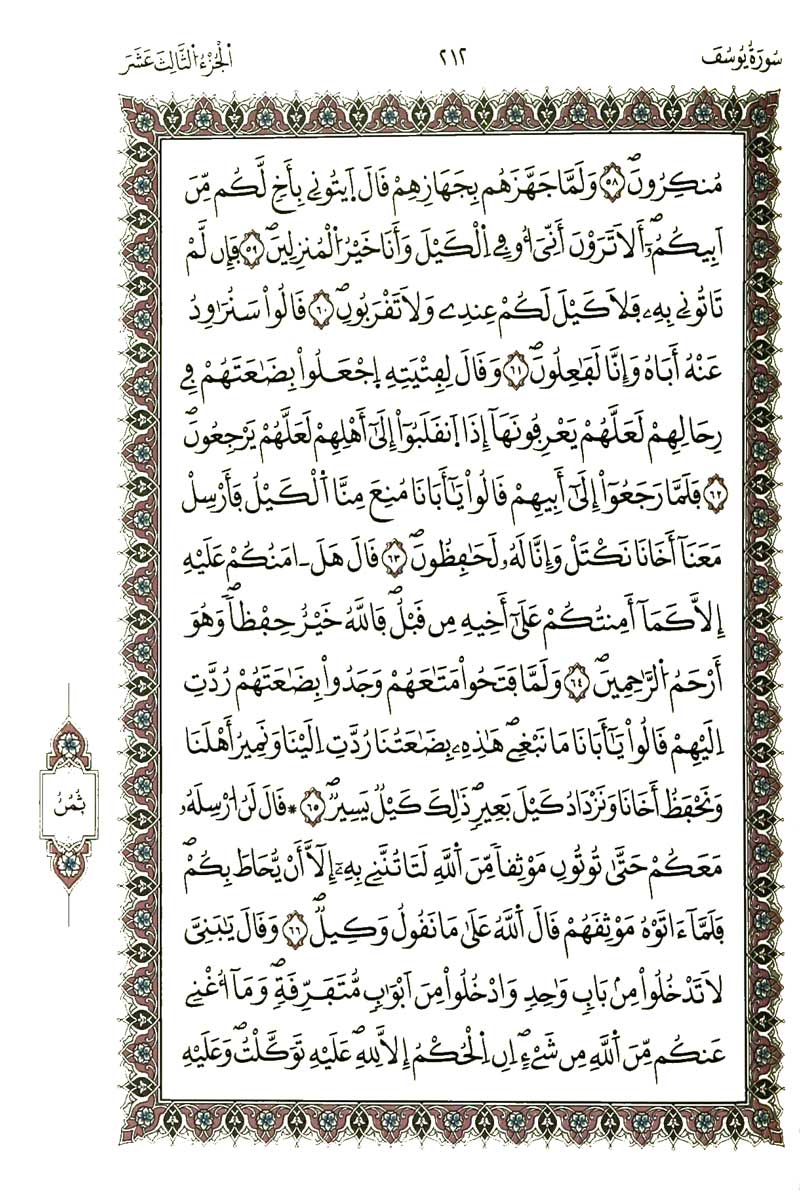 سُورَةُ يُوسُفَ
٢١٢
اَلْجُزْءُ الثَّالِثَ عَشَرَ
مُنكِرُونَۖ ٥٨ وَلَمَّا جَهَّزَهُم بِجَهَازِهِمْ قَالَ اَيتُونِي بِأَخٖ لَّكُم مِّنَ
اَبِيكُمُۥٓۖ أَلَا تَرَوْنَ أَنِّيَ أُوفِي اِلْكَيْلَ وَأَنَا خَيْرُ اُلْمُنزِلِينَۖ ٥٩ فَإِن لَّمْ
تَاتُونِي بِهِۦ فَلَا كَيْلَ لَكُمْ عِندِے وَلَا تَقْرَبُونِۖ ٦٠ قَالُواْ سَنُرَٰوِدُ
عَنْهُ أَبَاهُ وَإِنَّا لَفَٰعِلُونَۖ ٦١ وَقَالَ لِفِتْيَتِهِ اِجْعَلُواْ بِضَٰعَتَهُمْ فِي
رِحَالِهِمْ لَعَلَّهُمْ يَعْرِفُونَهَآ إِذَا اَنقَلَبُوٓاْ إِلَىٰٓ أَهْلِهِمْ لَعَلَّهُمْ يَرْجِعُونَۖ
٦٢ فَلَمَّا رَجَعُوٓاْ إِلَىٰٓ أَبِيهِمْ قَالُواْ يَٰٓأَبَانَا مُنِعَ مِنَّا اَلْكَيْلُ فَأَرْسِلْ
مَعَنَآ أَخَانَا نَكْتَلْ وَإِنَّا لَهُۥ لَحَٰفِظُونَۖ ٦٣ قَالَ هَلَ ـ اٰمَنُكُمْ عَلَيْهِ
إِلَّا كَمَآ أَمِنتُكُمْ عَلَىٰٓ أَخِيهِ مِن قَبْلُۖ فَاللَّهُ خَيْرٌ حِفْظاٗۖ وَهُوَ
أَرْحَمُ اُلرَّٰحِمِينَۖ ٦٤ وَلَمَّا فَتَحُواْ مَتَٰعَهُمْ وَجَدُواْ بِضَٰعَتَهُمْ رُدَّتِ
اِلَيْهِمْ قَالُواْ يَٰٓأَبَانَا مَا نَبْغِيۖ هَٰذِهِۦ بِضَٰعَتُنَا رُدَّتِ اِلَيْنَا وَنَمِيرُ أَهْلَنَا
وَنَحْفَظُ أَخَانَا وَنَزْدَادُ كَيْلَ بَعِيرٖۖ ذَٰلِكَ كَيْلٞ يَسِيرٞۖ ٦٥ * قَالَ لَنُ ا۟رْسِلَهُۥ
مَعَكُمْ حَتَّىٰ تُوتُونِ مَوْثِقاٗ مِّنَ اَللَّهِ لَتَاتُنَّنِي بِهِۦٓ إِلَّآ أَنْ يُّحَاطَ بِكُمْۖ
فَلَمَّآ ءَاتَوْهُ مَوْثِقَهُمْ قَالَ اَللَّهُ عَلَىٰ مَا نَقُولُ وَكِيلٞۖ ٦٦ وَقَالَ يَٰبَنِيَّ
لَا تَدْخُلُواْ مِنۢ بَابٖ وَٰحِدٖ وَادْخُلُواْ مِنَ اَبْوَٰبٖ مُّتَفَرِّقَةٖۖ وَمَآ أُغْنِي
عَنكُم مِّنَ اَللَّهِ مِن شَيْءٍۖ اِنِ اِلْحُكْمُ إِلَّا لِلهِۖ عَلَيْهِ تَوَكَّلْتُۖ وَعَلَيْهِ
ثُمُنُ